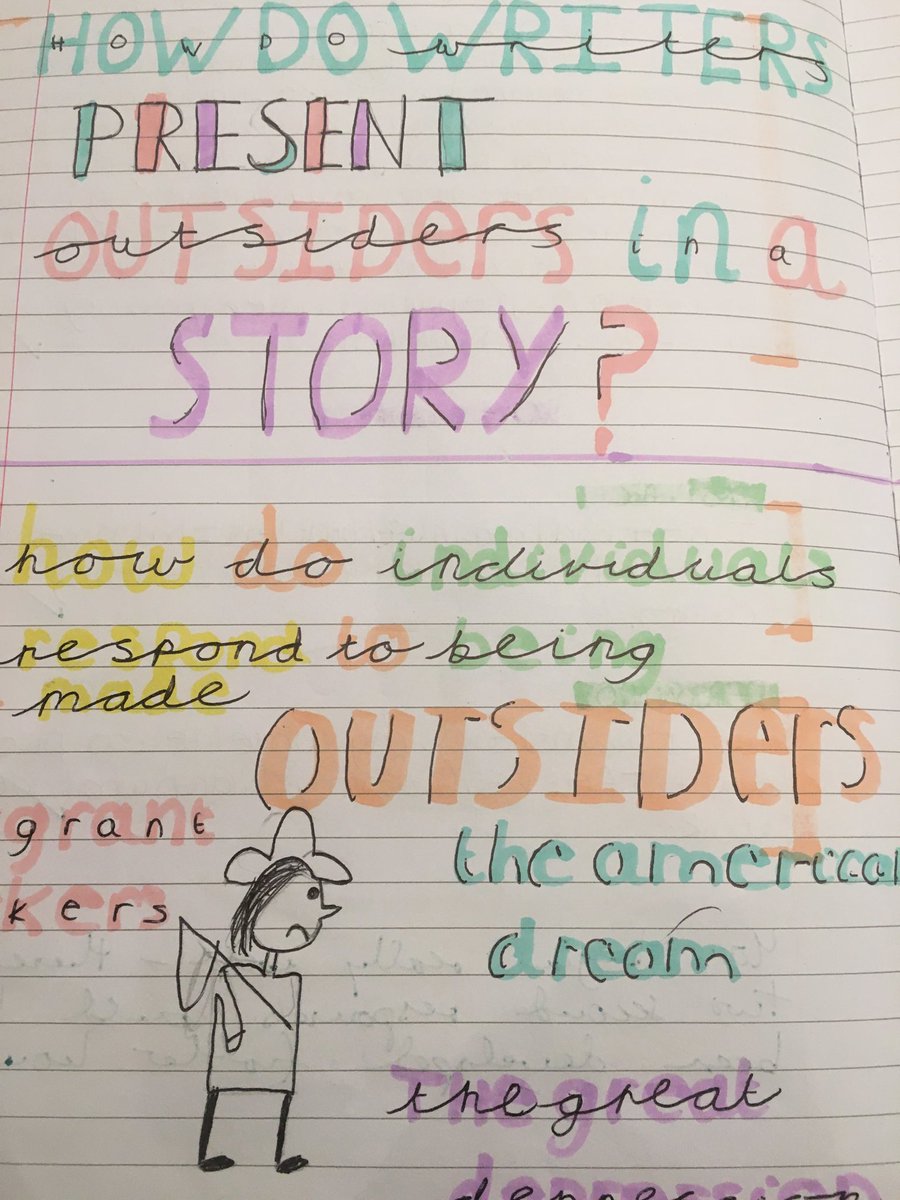 HOW DO WRITERS
PRESENT
OUTSIDers in a
STORY?
how do individuals
respond to being
made
OUTSIDerS
grant
kers
the american
dream
the great
depression